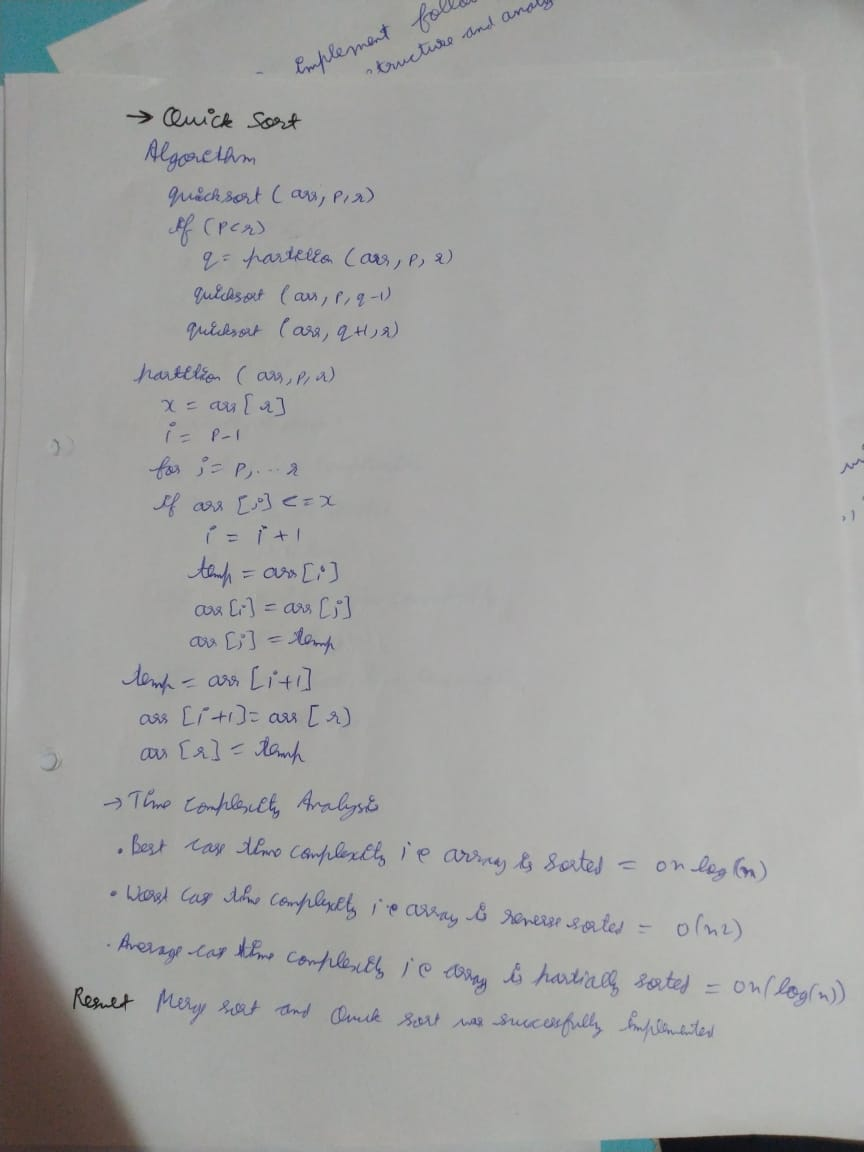 Implement follo
structure and analy
→ Quick Sort
Algorithm
quicksort ( arr, p, r)
if (p<r)
q = partition (arr, p, r)
quicksort (arr, p, q-1)
quicksort (arr, q+1, r)
partition ( arr, p, r)
x = arr[r]
i = p-1
for j = p, ... r
if arr [j] <= x
i = i + 1
temp = arr[i]
arr [i] = arr [j]
arr [j] = temp
temp = arr [i+1]
arr [i+1] = arr [r]
arr [r] = temp
→ Time complexity Analysis
. Best case time complexity i e array is sorted = on log(n)
• Worst case time complexity i e array is reverse sorted = o(n2)
. Average case time complexity i e array is partially sorted = on(log(n))
Result Merge sort and Quick sort was successfully implemented